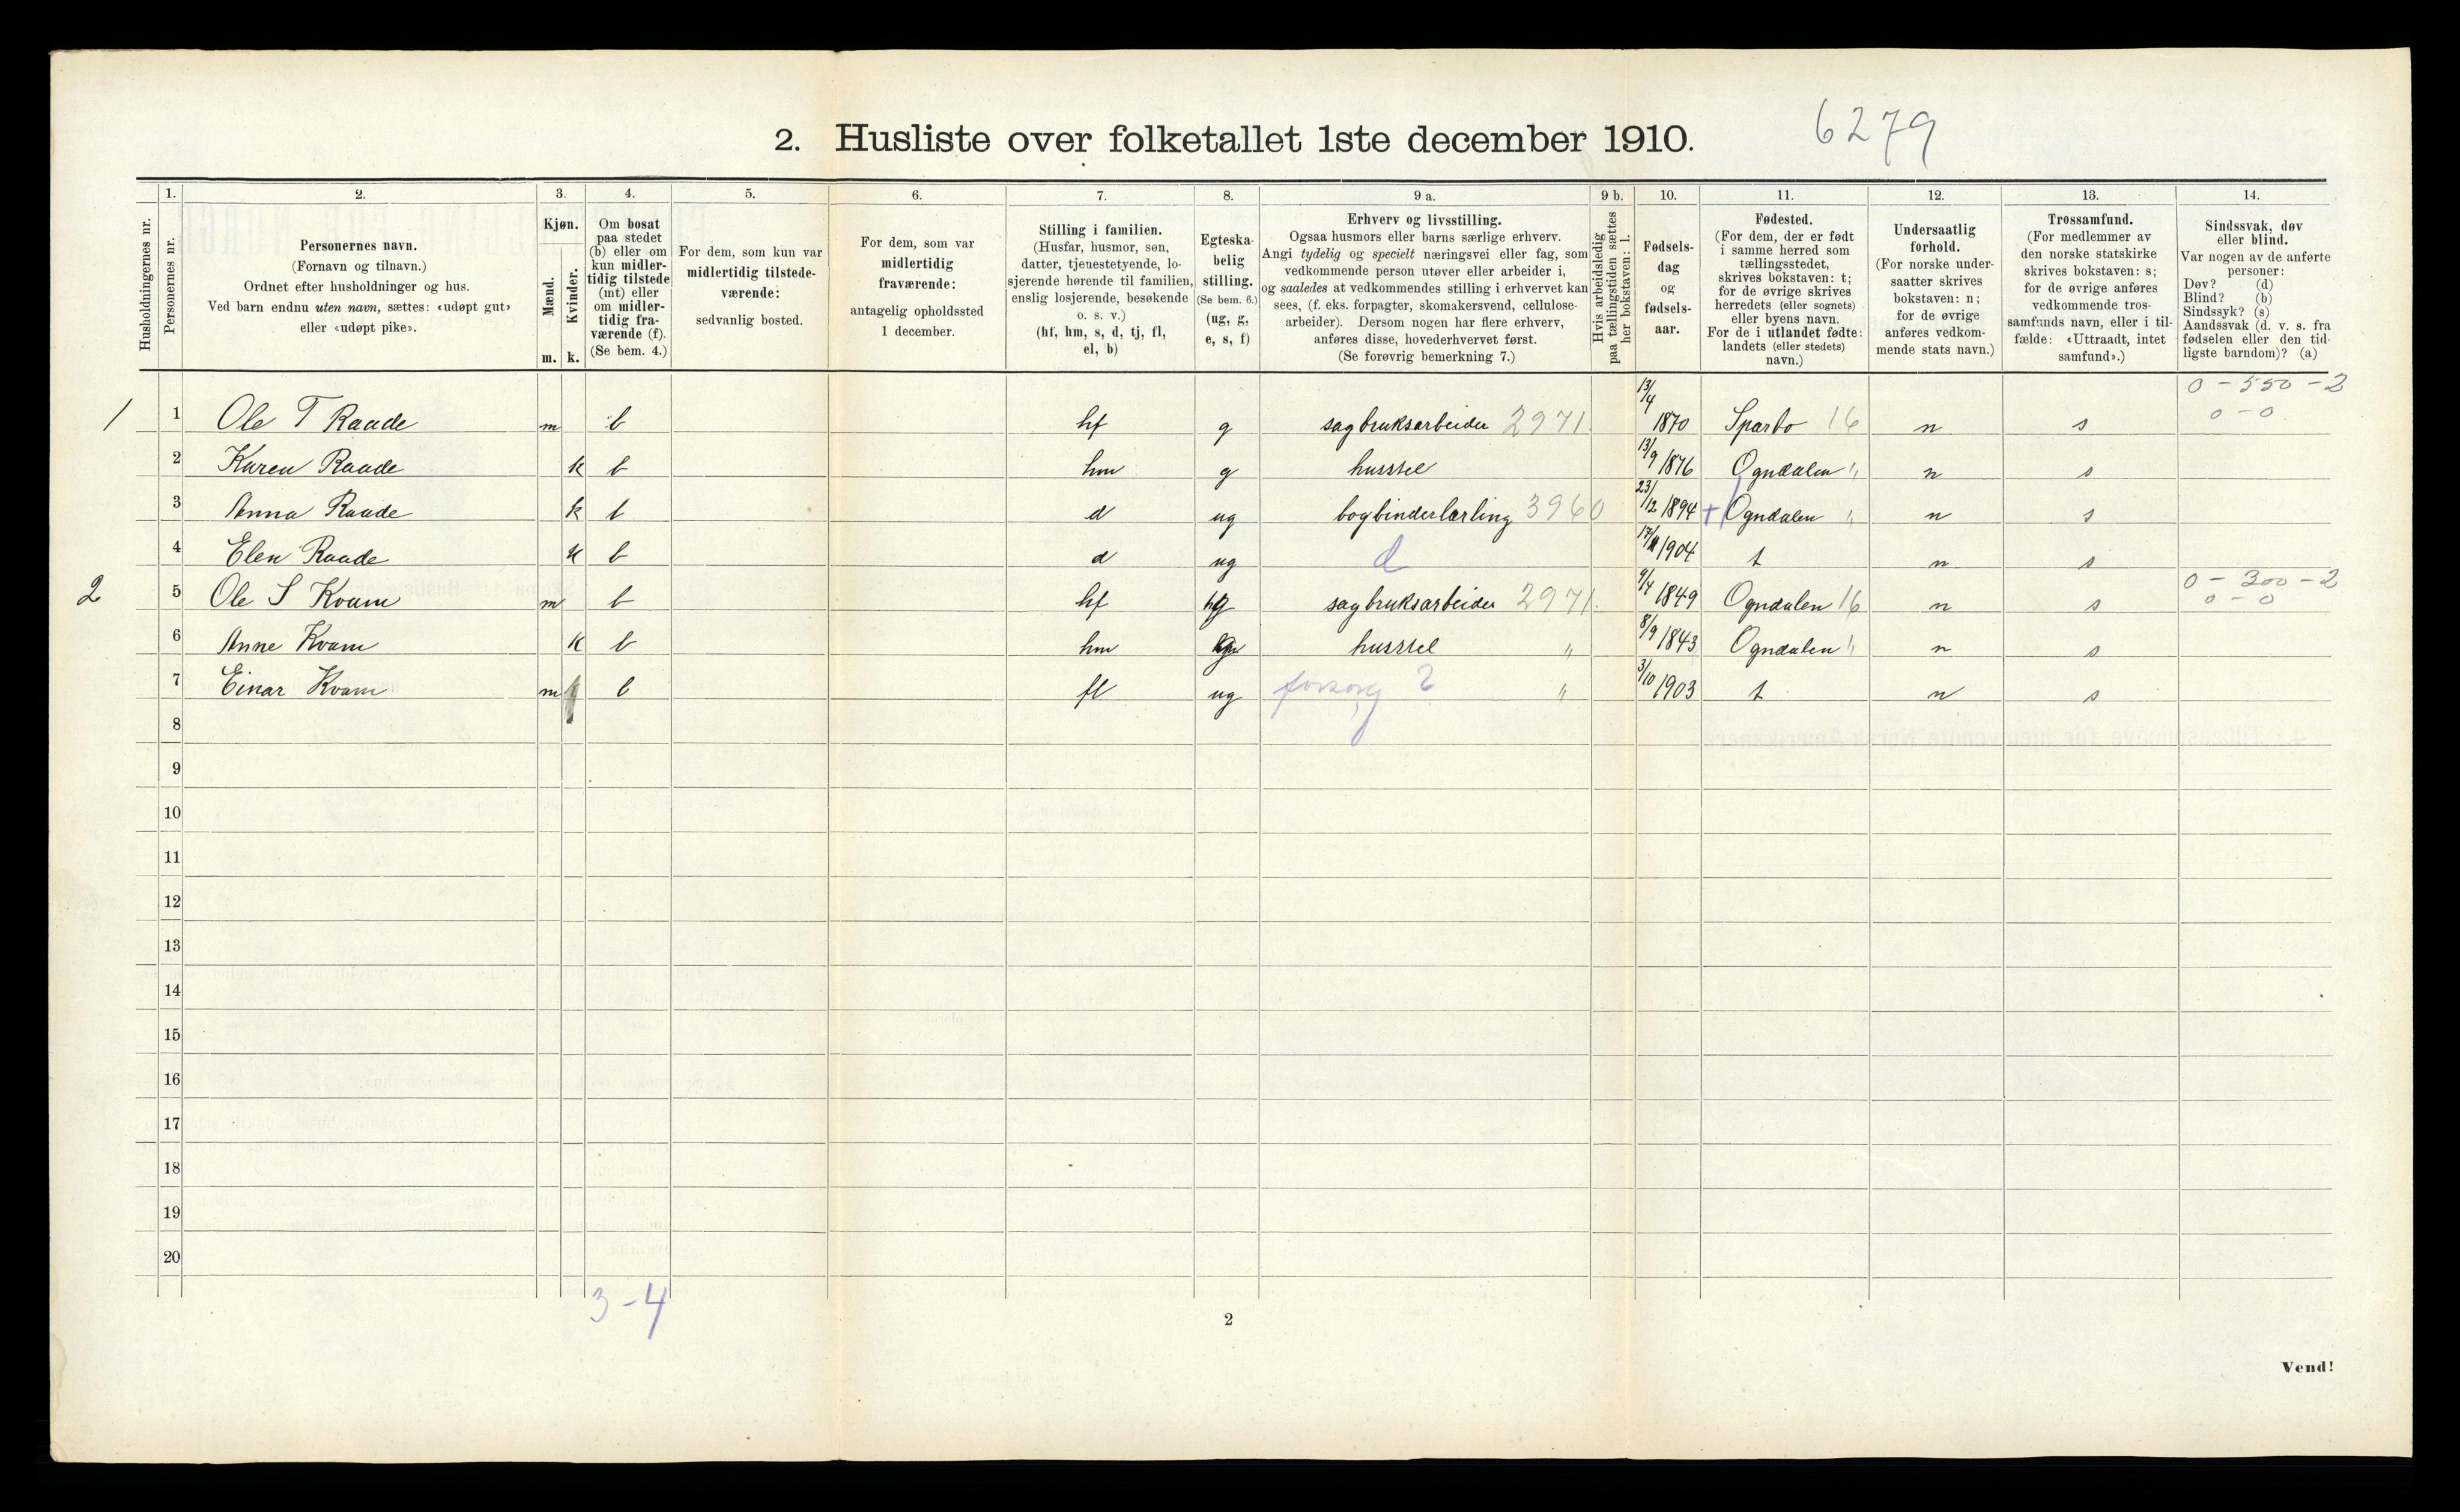 2. Husliste over folketallet 1ste december 1910.
6279
Husholdningernes nr.
1.
Personernes nr.
2.
Personernes navn.
(Fornavn og tilnavn.)
Ordnet efter husholdninger og hus.
Ved barn endnu uten navn, sættes: «udøpt gut»
eller «udøpt pike».
3.
Kjøn.
Mænd.
Kvinder.
m. k.
4.
Om bosat
paa stedet
(b) eller om
kun midler-
tidig tilstede
(mt) eller
om midler-
tidig fra-
værende (f).
(Se bem. 4.)
5.
For dem, som kun var
midlertidig tilstede-
værende:
sedvanlig bosted.
6.
For dem, som var
midlertidig
fraværende:
antagelig opholdssted
1 december.
7.
Stilling i familien.
(Husfar, husmor, søn,
datter, tjenestetyende, lo-
sjerende hørende til familien,
enslig losjerende, besøkende
o. s. v.)
(hf, hm, s, d, tj, fl,
el, b)
8.
Egteska-
belig
stilling.
(Se bem. 6.)
(ug, g,
e, s, f)
9 a.
Erhverv og livsstilling.
Ogsaa husmors eller barns særlige erhverv.
Angi tydelig og specielt næringsvei eller fag, som
vedkommende person utøver eller arbeider i,
og saaledes at vedkommendes stilling i erhvervet kan
sees, (f. eks. forpagter, skomakersvend, cellulose-
arbeider). Dersom nogen har flere erhverv,
anføres disse, hovederhvervet først.
(Se forøvrig bemerkning 7.)
9 b.
Hvis arbeidsledig
paa tællingstiden sættes
her bokstaven: l.
10.
Fødsels-
dag
og
fødsels-
aar.
11.
Fødested.
(For dem, der er født
i samme herred som
tællingsstedet,
skrives bokstaven: t;
for de øvrige skrives
herredets (eller sognets)
eller byens navn.
For de i utlandet fødte:
landets (eller stedets)
navn.)
12.
Undersaatlig
forhold.
(For norske under-
saatter skrives
bokstaven: n;
for de øvrige
anføres vedkom-
mende stats navn.)
13.
Trossamfund.
(For medlemmer av
den norske statskirke
skrives bokstaven: s;
for de øvrige anføres
vedkommende tros-
samfunds navn, eller i til-
fælde: «Uttraadt, intet
samfund».)
14.
Sindssvak, døv
eller blind.
Var nogen av de anførte
personer:
Døv? (d)
Blind? (b)
Sindssyk? (s)
Aandssvak (d. v. s. fra
fødselen eller den tid-
ligste barndom)? (a)
0 - 550 - 2
1 1 Ole T Raade m b hf g sagbruksarbeider 2971 13/4 1870 Sparbo 16 n s 0 - 0
2 Karen Raade k b hm g husstel 13/9 1876 Ogndalen " n s
3 Anna Raade k b d ug bogbinderlærling 3960 23/12 1894 + Ogndalen " n s
4 Elen Raade k b d ug d 1904 t n s
0 - 300 - 2
2 5 Ole S Kvam m b hf g sagbruksarbeider 2971 9/4 1849 Ogndalen 16 n s 0 - 0
6 Anne Kvam k b hm g husstel " 8/9 1843 Ogndalen " n s
7 Einar Kvam m b fl ug forsørg ? " 3/10 1903 t n s
8
9
10
11
12
13
14
15
16
17
18
19
20
3 - 4
2
Vend!